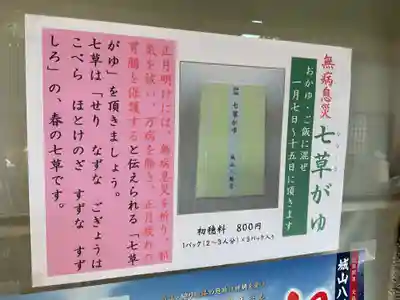 無病息災
七草がゆ
おかゆ・ご飯に混ぜ
一月七日～十五日に頂きます
七草がゆ
初穂料 800円
1パック(2～3人分)×3パック入り
正月明けには、無病息災を祈り、邪
気を祓い、万病を除き、正月疲れの
胃腸を保護すると伝えられる「七草
がゆ」を頂きましょう。
七草は「せり なずな ごぎょう は
こべら ほとけのざ すずな すず
しろ」の、春の七草です。
城山八